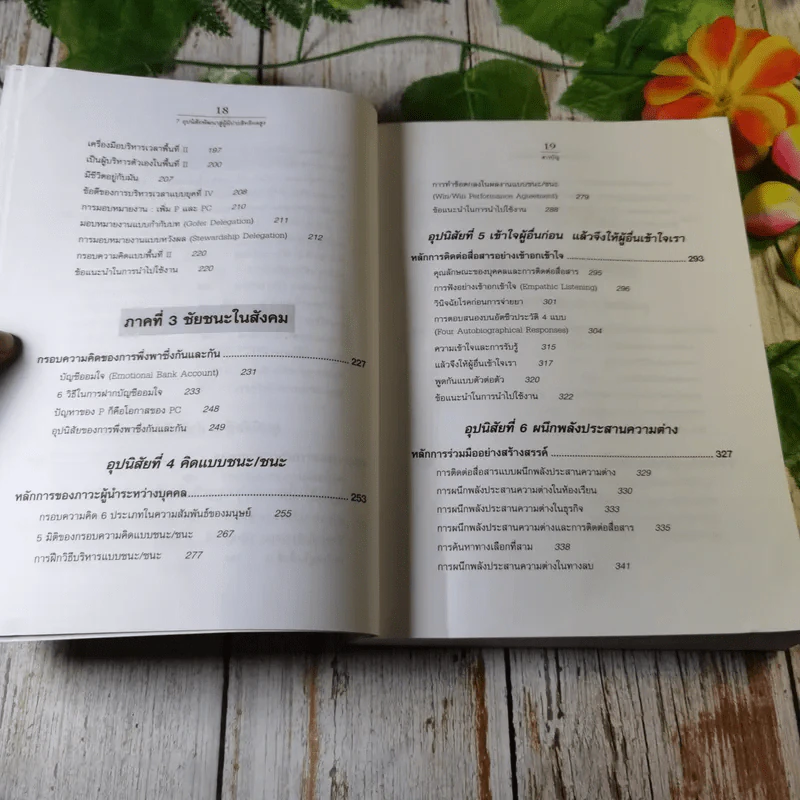 18
7 อุปนิสัยพัฒนาสู่ผู้มีประสิทธิผลสูง
เครื่องมือบริหารเวลาพื้นที่ II 197
เป็นผู้บริหารตัวเองในพื้นที่ II 200
มีชีวิตอยู่กับมัน 207
ข้อดีของการบริหารเวลาแบบยุคที่ IV 208
การมอบหมายงาน : เพิ่ม P และ PC 210
มอบหมายงานแบบกำกับบท (Gofer Delegation) 211
การมอบหมายงานแบบหวังผล (Stewardship Delegation) 212
กรอบความคิดแบบพื้นที่ II 220
ข้อแนะนำในการนำไปใช้งาน 220
ภาคที่ 3 ชัยชนะในสังคม
กรอบความคิดของการพึ่งพาซึ่งกันและกัน 227
บัญชีออมใจ (Emotional Bank Account) 231
6 วิธีในการฝากบัญชีออมใจ 233
ปัญหาของ P ก็คือโอกาสของ PC 248
อุปนิสัยของการพึ่งพาซึ่งกันและกัน 249
อุปนิสัยที่ 4 คิดแบบชนะ/ชนะ
หลักการของภาวะผู้นำระหว่างบุคคล 253
กรอบความคิด 6 ประเภทในความสัมพันธ์ของมนุษย์ 255
5 มิติของกรอบความคิดแบบชนะ/ชนะ 267
การฝึกวิธีบริหารแบบชนะ/ชนะ 277
19
สารบัญ
การทำข้อตกลงในผลงานแบบชนะ/ชนะ
(Win/Win Performance Agreement) 279
ข้อแนะนำในการนำไปใช้งาน 288
อุปนิสัยที่ 5 เข้าใจผู้อื่นก่อน แล้วจึงให้ผู้อื่นเข้าใจเรา
หลักการติดต่อสื่อสารอย่างเข้าอกเข้าใจ 293
คุณลักษณะของบุคคลและการติดต่อสื่อสาร 295
การฟังอย่างเข้าอกเข้าใจ (Empathic Listening) 296
วินิจฉัยโรคก่อนการจ่ายยา 301
การตอบสนองบนอัตชีวประวัติ 4 แบบ
(Four Autobiographical Responses) 304
ความเข้าใจและการรับรู้ 315
แล้วจึงให้ผู้อื่นเข้าใจเรา 317
พูดกันแบบตัวต่อตัว 320
ข้อแนะนำในการนำไปใช้งาน 322
อุปนิสัยที่ 6 ผนึกพลังประสานความต่าง
หลักการร่วมมืออย่างสร้างสรรค์ 327
การติดต่อสื่อสารแบบผนึกพลังประสานความต่าง 329
การผนึกพลังประสานความต่างในห้องเรียน 330
การผนึกพลังประสานความต่างในธุรกิจ 333
การผนึกพลังประสานความต่างและการติดต่อสื่อสาร 335
การค้นหาทางเลือกที่สาม 338
การผนึกพลังประสานความต่างในทางลบ 341